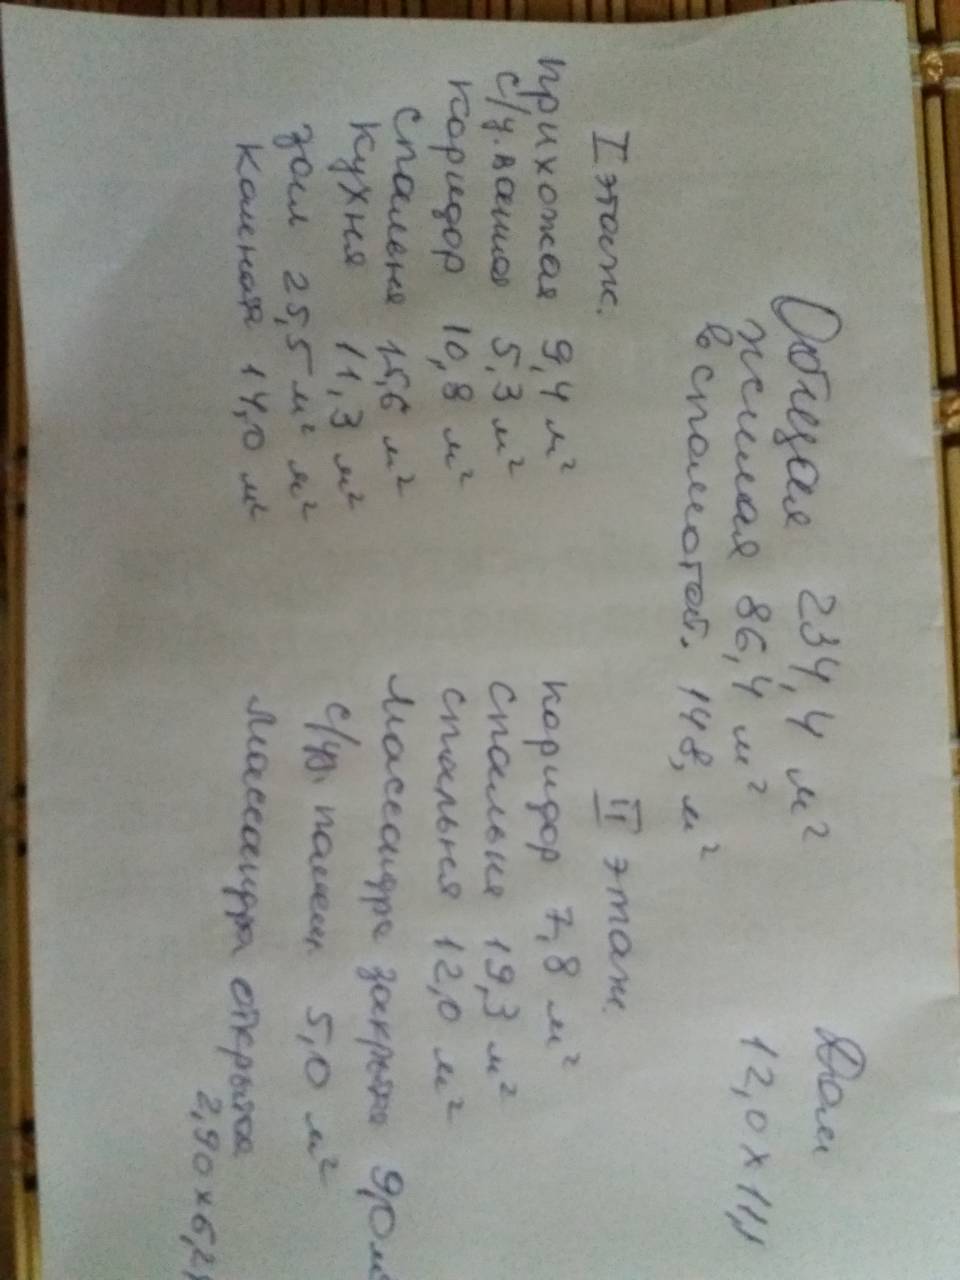 Общая 234,4 м² Дом
жилая 86,4 м² 12,0 х 11,1
вспомогат. 148, м²
I этаж.
прихожая 9,4 м²
с/у. ванная 5,3 м²
коридор 10,8 м²
спальня 15,6 м²
кухня 11,3 м²
зал 25,5 м² м²
комната 14,0 м²
II этаж.
коридор 7,8 м²
спальня 19,3 м²
спальня 12,0 м²
Массандра закрыта 9,0 м
помещ. 5,0 м²
Массандра открытая
2,90 х 6,2